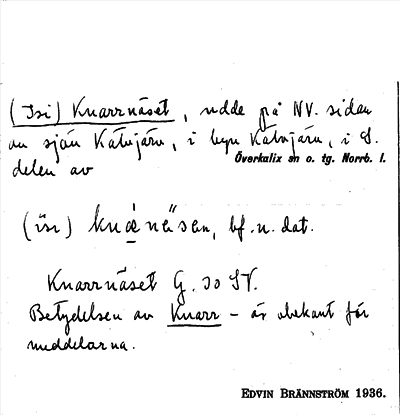 (Isi) Knarrnäset, udde på NV. sidan
av sjön Kätujärv, i byn Kätujärv, i S.
delen av Överkalix sn o. tg. Norrb. l.
(isi) bf. n. dat.
Knarrnäset G. 30 SV.
Betydelsen av Knarr – är obekant för
meddelarna.
EDVIN BRÄNNSTRÖM 1936.